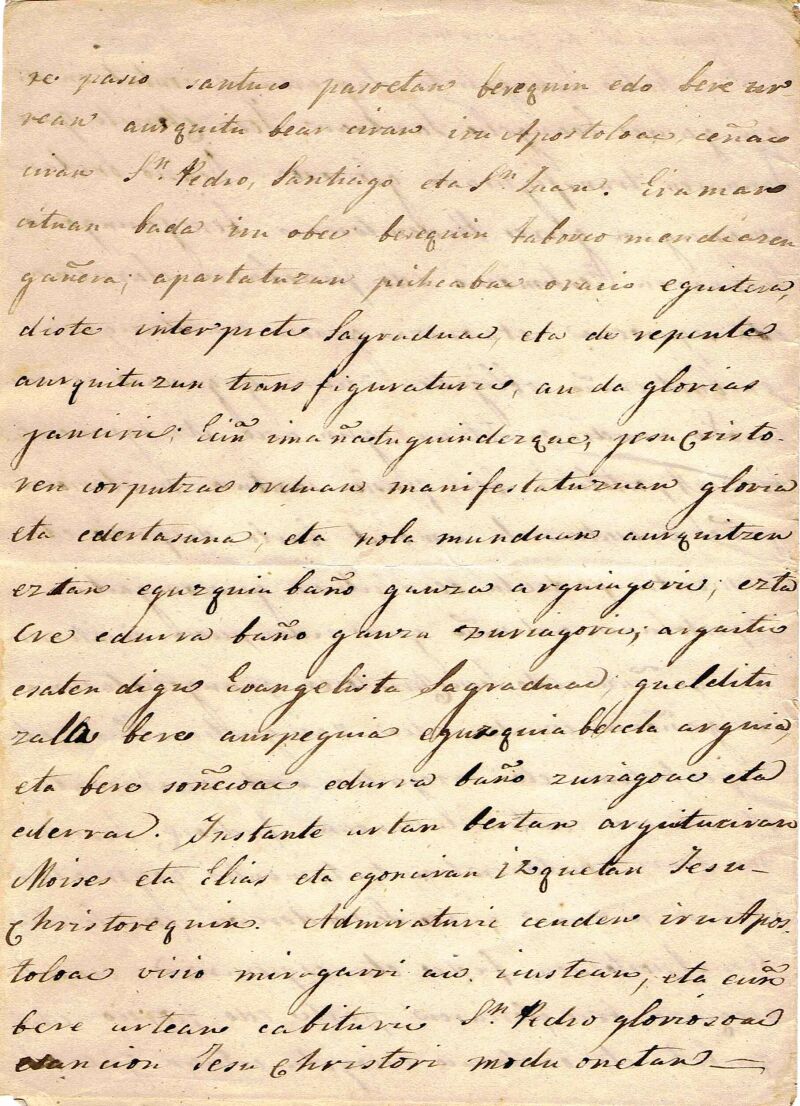 re pasio santuco pasoetan berequin edo bere ur-
rean aurquitu bear ciran iru Apostoloac, ceñac
ciran Sn. Pedro, Santiago eta Sn. Juan. Eraman
cituan bada iru obec berequin taborco mendiaren
gañera; apartatuzan pixcabac oracio eguitera,
diote interprete Sagraduac, eta de repente
aurquituzan transfiguraturic, au da glorias
janciric; Ecin imañatuguindezque, jesuCristo-
ren corputzac orduan manifestatuzuan gloria
eta edertasuna; eta nola munduan aurquitzen
eztan eguzquia baño gauza arguiagoric; ezta
ere edurra baño gauza zuriagoric; argaitic
esaten digu Evangelista Sagraduac, guelditu
zala bere aurpeguia eguzquia becela arguia,
eta bere soñecoac edurra baño zuriagoac eta
ederrac. Instante artan bertan arguituciran
Moises eta Elias eta egonciran izquetan Jesu-
Christorequin. Admiraturic ceuden iru Apos-
toloac visio miragarri au icustean, eta ecin
bere artean cabituric Sn. Pedro gloriosoac
esancion Jesu Christori modu onetan—